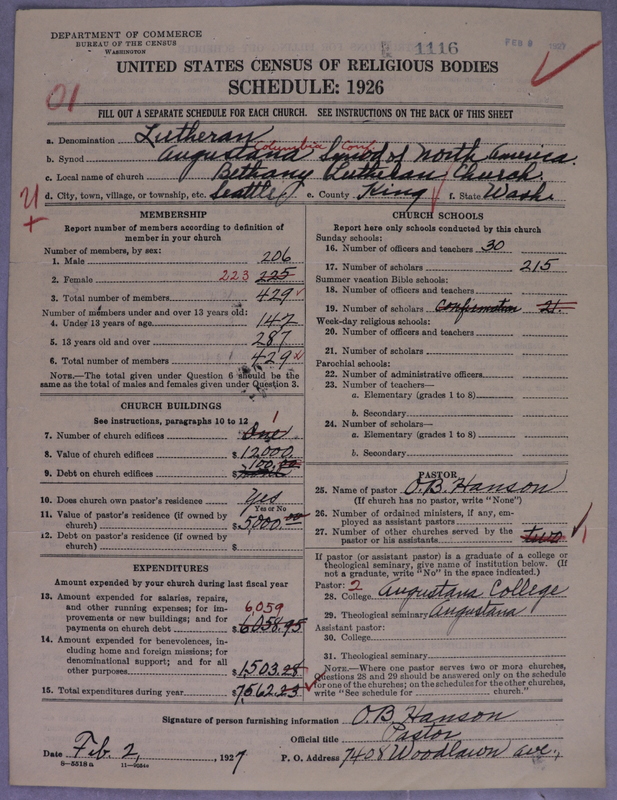 DEPARTMENT OF COMMERCE
BUREAU OF THE CENSUS
WASHINGTON
1116
FEB 9 1927
UNITED STATES CENSUS OF RELIGIOUS BODIES
SCHEDULE: 1926
01
FILL OUT A SEPARATE SCHEDULE FOR EACH CHURCH. SEE INSTRUCTIONS ON THE BACK OF THIS SHEET
a. Denomination Lutheran
Columbia Conf
b. Synod Augustana Synod of North America.
c. Local name of church Bethany Lutheran Church
d. City, town, village, or township, etc. Seattle e. County King f. State Wash.
MEMBERSHIP
Report number of members according to definition of
member in your church
Number of members, by sex:
1. Male 206
2. Female 223 225
3. Total number of members 429
Number of members under and over 13 years old:
4. Under 13 years of age 142
5. 13 years old and over 287
6. Total number of members 429
NOTE.—The total given under Question 6 should be the
same as the total of males and females given under Question 3.
CHURCH BUILDINGS
See instructions, paragraphs 10 to 12
1
7. Number of church edifices One
8. Value of church edifices $12,000.
100.00
9. Debt on church edifices $
10. Does church own pastor's residence Yes
Yes or No
11. Value of pastor's residence (if owned by
church) $5,000.00
12. Debt on pastor's residence (if owned by
church) $
EXPENDITURES
Amount expended by church during last fiscal year
13. Amount expended for salaries, repairs,
and other running expenses; for im-
provements or new buildings; and for
payments on church debt 6,059 $6058.95
14. Amount expended for benevolences, in-
cluding home and foreign missions; for
denominational support; and for all
other purposes $1,503.28
15. Total expenditures during year $7,562.23
CHURCH SCHOOLS
Report here only schools conducted by this church
Sunday schools:
16. Number of officers and teachers 30
17. Number of scholars 215
Summer vacation Bible schools:
18. Number of officers and teachers
19. Number of scholars Confirmation 21.
Week-day religious schools:
20. Number of officers and teachers
21. Number of scholars
Parochial schools:
22. Number of administrative officers
23. Number of teachers—
a. Elementary (grades 1 to 8)
b. Secondary
24. Number of scholars—
a. Elementary (grades 1 to 8)
b. Secondary
PASTOR
25. Name of pastor O.B. Hanson
(If church has no pastor, write "None")
26. Number of ordained ministers, if any, em-
ployed as assistant pastors
27. Number of other churches served by the
pastor or his assistants two 1
If pastor (or assistant pastor) is a graduate of a college or
theological seminary, give name of institution below. (If
not a graduate, write "No" in the space indicated.)
Pastor: 2
28. College Augustana College
29. Theological seminary Augustana
Assistant pastor:
30. College
31. Theological seminary
NOTE.—Where one pastor serves two or more churches,
Questions 28 and 29 should be answered only on the schedule
for one of the churches; on the schedules for the other churches,
write "See schedule for church."
Signature of person furnishing information O.B. Hanson
Official title Pastor
Date Feb. 2, 1927 P. O. Address 7408 Woodlawn ave.,
8—5518a 11—9054c